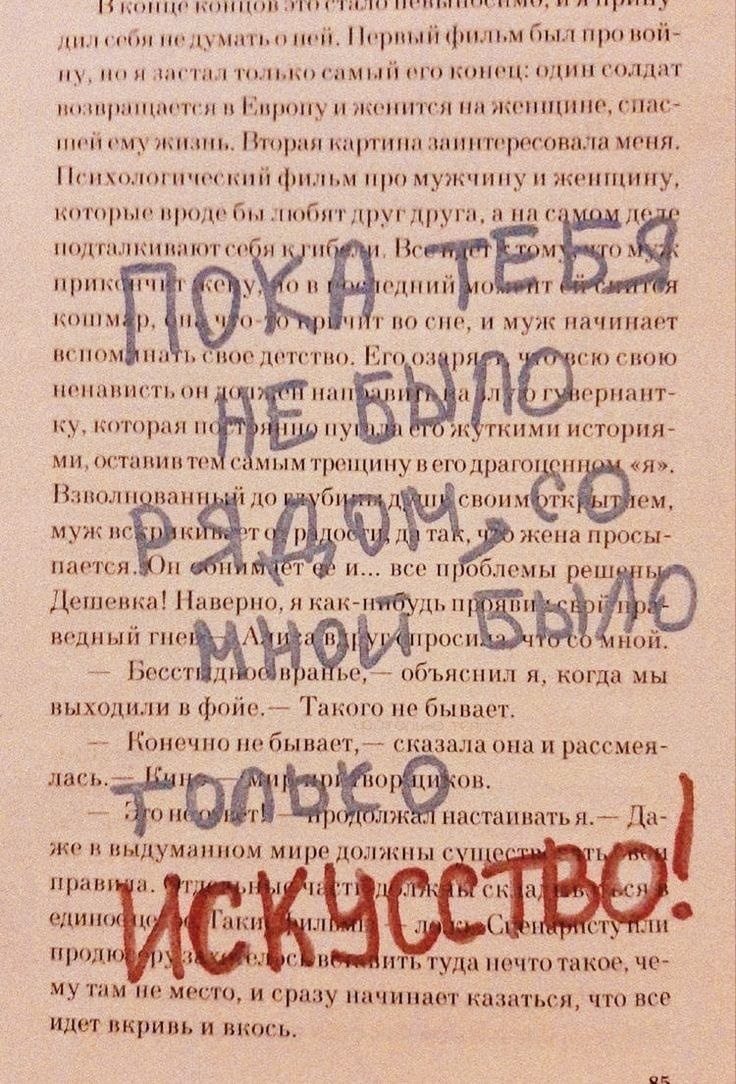 В конце концов это стало невыносимо, и я прину-
дил себя не думать о ней. Первый фильм был про вой-
ну, но я застал только самый его конец: один солдат
возвращается в Европу и женится на женщине, спас-
шей ему жизнь. Вторая картина заинтересовала меня.
Психологический фильм про мужчину и женщину,
которые вроде бы любят друг друга, а на самом деле
подталкивают себя к гибели. Все идет к тому, что муж
прикончит жену, но в последний момент ей снится
кошмар, она что-то кричит во сне, и муж начинает
вспоминать свое детство. Его озаряет, что всю свою
ненависть он должен направить на злую гувернант-
ку, которая постоянно пугала его жуткими история-
ми, оставив тем самым трещину в его драгоценном «я».
Взволнованный до глубины души своим открытием,
муж вскрикивает от радости, да так, что жена просы-
пается. Он обнимает ее и... все проблемы решены.
Дешевка! Наверно, я как-нибудь проявил свой пра-
ведный гнев — Алиса вдруг спросила, что со мной.
— Бесстыдное вранье,— объяснил я, когда мы
выходили в фойе.— Такого не бывает.
— Конечно не бывает,— сказала она и рассмея-
лась.— Кино — мир притворщиков.
— Это не ответ! — продолжал настаивать я.— Да-
же в выдуманном мире должны существовать свои
правила. Отдельные части должны складываться в
единое целое. Такие фильмы — ложь. Сценаристу или
продюсеру захотелось вставить туда нечто такое, че-
му там не место, и сразу начинает казаться, что все
идет вкривь и вкось.
85
ПОКА ТЕБЯ
НЕ БЫЛО
РЯДОМ, СО
МНОЙ БЫЛО
ТОЛЬКО
ИСКУССТВО!